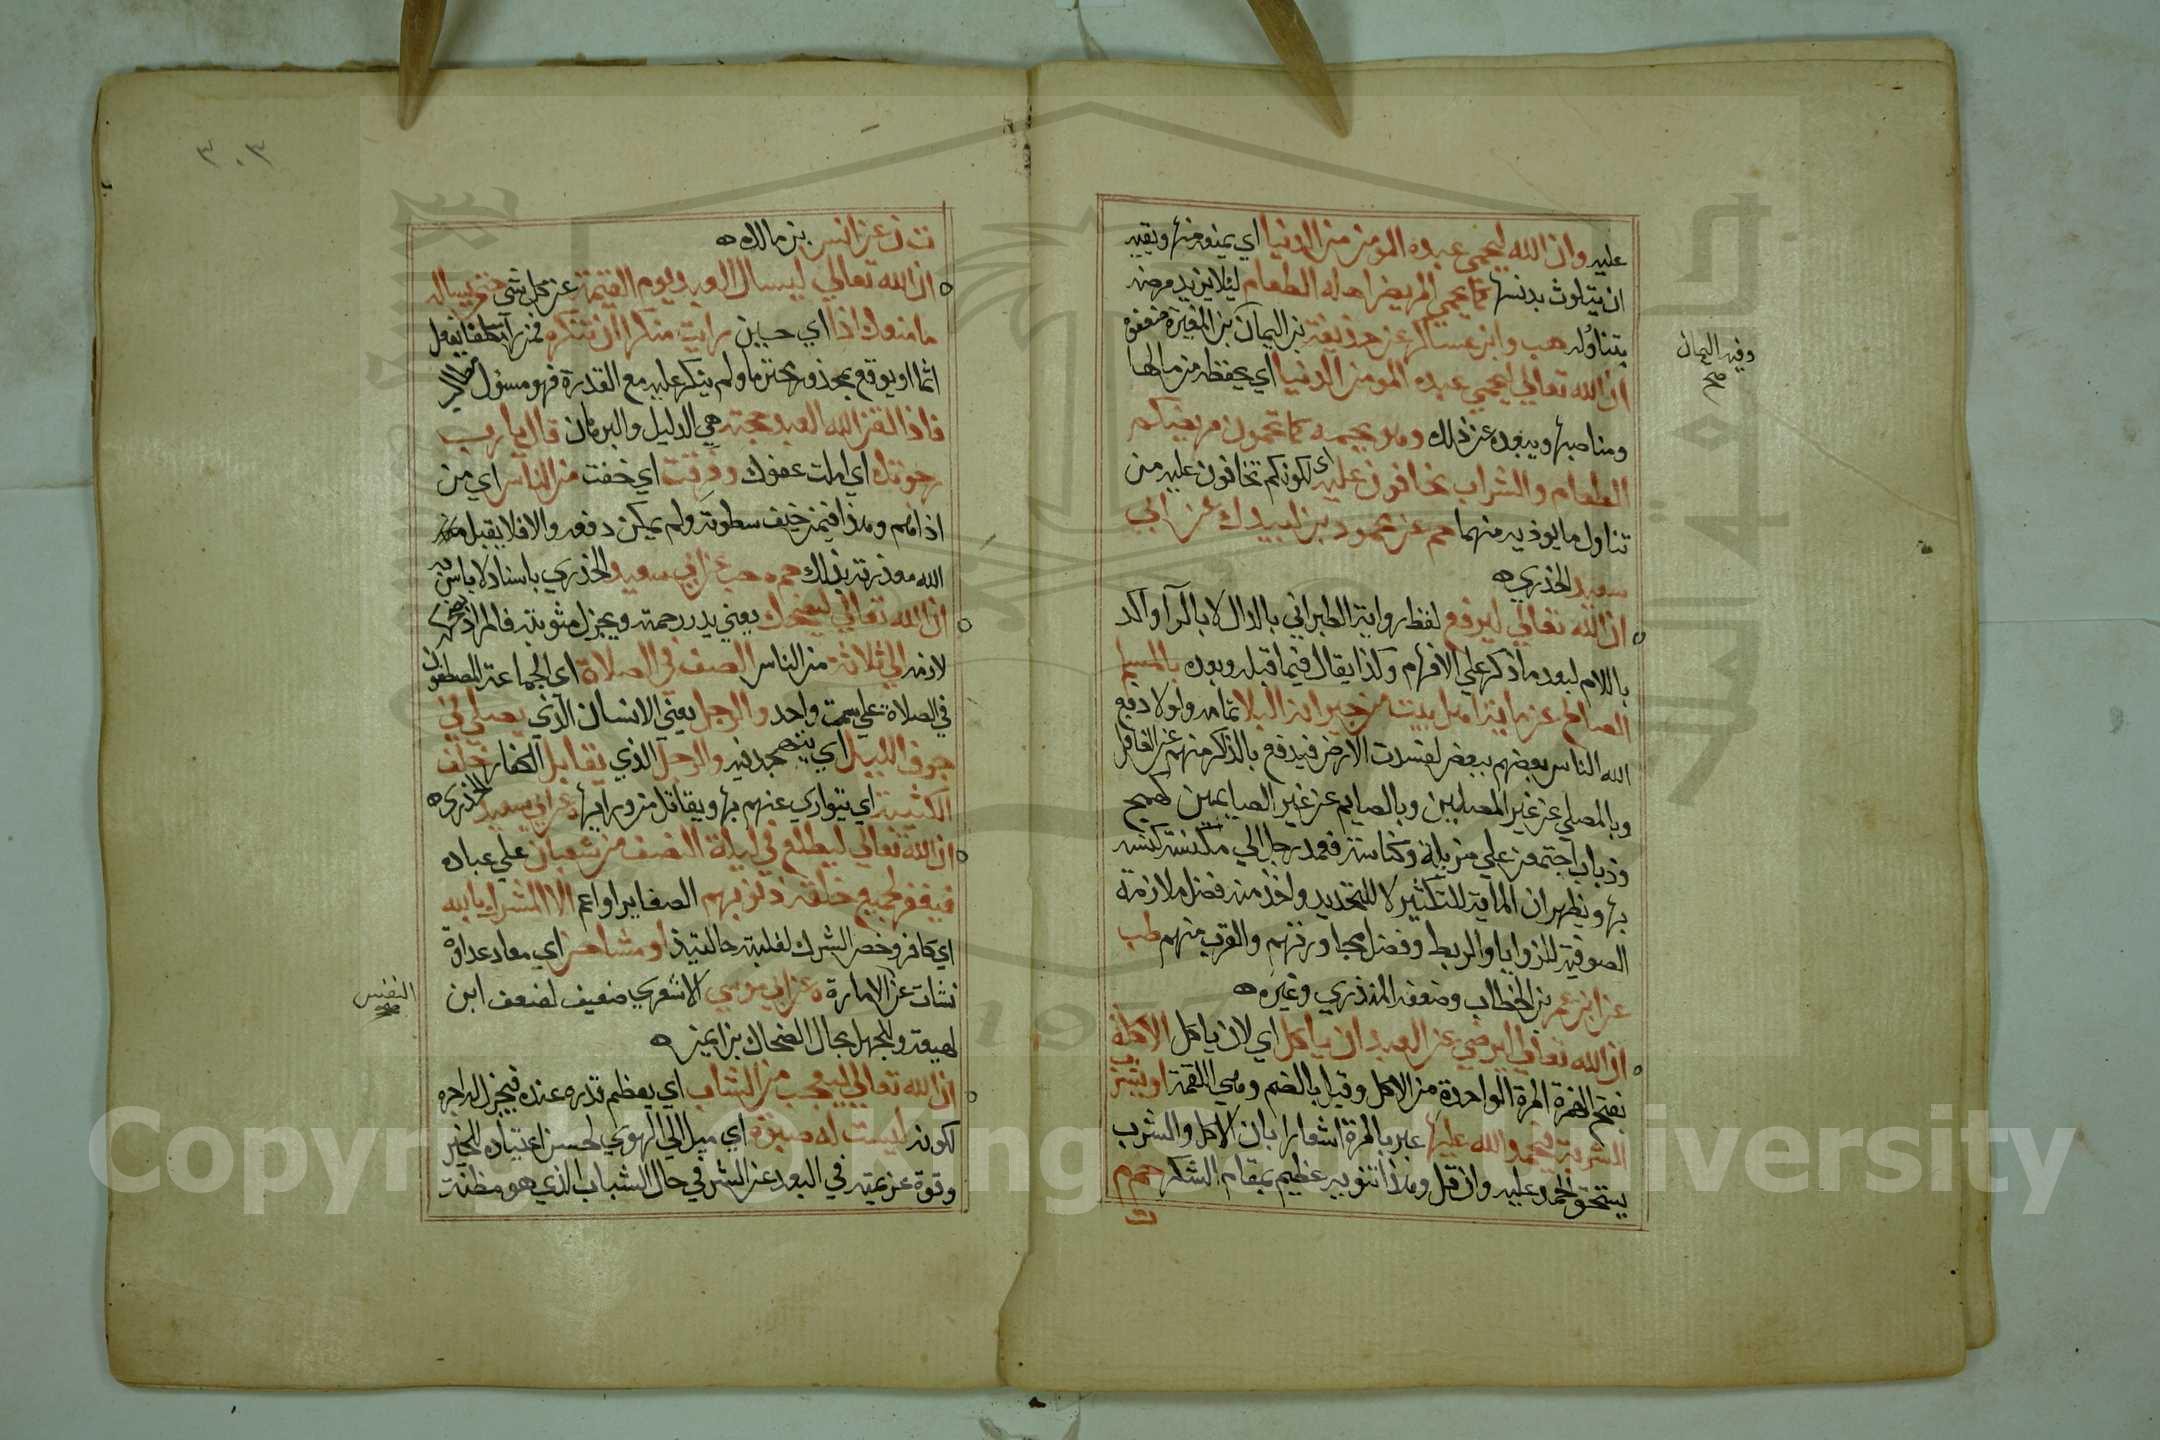 عليه وان الله ليحمي عبده المومن من الدنيا اي يمنعه منها ويقيه
ان يتلوث بدنسها كما يحمي المريض اهله الطعام ليلا يزيد مرضه
بتناوله هب وابن عساكر عن حذيفة بن اليمان بن المغيرة ضعفوه
وفيه اليمان
صح
ان الله تعالي ليحمي عبده المومن الدنيا اي يحفظه من مالها
ومناصبها ويبعده عن ذلك وهو يحبه كما تحمون مريضكم
الطعام والشراب تخافون عليه اي لكونكم تخافون عليه من
تناول ما يوذيه منهما حم عن محمود بن لبيد ك عن ابي
سعيد الخدري ه
ان الله تعالي ليدفع لفظ رواية الطبراني بالدال لا بالرآ واكد
باللام لبعد ما ذكر علي الافهام وكذا يقال فيما قبله وبعده بالمسلم
الصالح عن ماية اهل بيت من جيرانه البلا تمامه ولولا دفع
الله الناس بعضهم ببعض لفسدت الارض فيدفع بالذاكر منهم عن الغافل
وبالمصلي عن غير المصلين وبالصايم عن غير الصايمين كهمج
وذباب اجتمعن علي مزبلة وكناسة فعمد رجل الي مكنسة كنس
بها ويظهر ان الماية للتكثير لا للتحديد واخذ منه فضل ملازمة
الصوفية للزوايا والربط وفضل مجاورتهم والقرب منهم طب
عن ابن عمر بن الخطاب وضعفه المنذري وغيره ه
ان الله تعالي ليرضي عن العبد ان ياكل اي لان ياكل الاكلة
بفتح الهمزة المرة الواحدة من الاكل وقيل بالضم وهي اللقمة او يشرب
الشربة فيحمد الله عليها عبر بالمرة اشعارا بان الاكل والشرب
يستحق الحمد عليه وان قل وهذا تنويه عظيم بمقام الشكر حم م
ت
٣٠٣
ت ن عن انس بن مالك ه
ان الله تعالي ليسال العبد يوم القيمة عن كل شي حتي يساله
ما منعك اذا اي حين رايت منكرا ان تنكره فمن رآ مكلفا يفعل
اثما او يوقع بمحذور محترما ولم ينكر عليه مع القدرة فهو مسئول
فاذا لقن الله العبد حجته هي الدليل والبرهان قال يا رب
رجوتك اي املت عفوك وفرقت اي خفت من الناس اي من
اذاهم وهذا فيمن خيف سطوته ولم يمكن دفعه والا فلا يقبل
الله معذرته بذلك حم ه حب عن ابي سعيد الخدري باسناد لا باس به
ان الله تعالي ليضحك يعني يدر رحمته ويجزل مثوبته فالمراد
لازمه الي ثلاثة من الناس الصف في الصلاة اي الجماعة المصطفون
في الصلاة علي سمت واحد والرجل يعني الانسان الذي يصلي في
جوف الليل اي يتهجد فيه والرجل الذي يقاتل الكفار خلف
الكتيبة اي يتواري عنهم بها ويقاتل من ورايها ه عن ابي سعيد الخدري ه
ان الله تعالي ليطلع في ليلة النصف من شعبان علي عباده
فيغفر لجميع خلقه ذنوبهم الصغاير او اعم الا المشرك بالله
اي كافر وخص الشرك لغلبته حالتيذ او مشاحن اي معاد عداوة
نشات عن الامارة ه عن ابي موسي الاشعري ضعيف لضعف ابن
النفس
صح
لهيعة والجهل بحال الضحاك بن ايمن ه
ان الله تعالي ليعجب من الشاب اي يعظم قدره عنده فيجزل له اجره
لكونه ليست له صبوة اي ميل الي الهوي لحسن اعتياده للخير
وقوة عزيمته في البعد عن الشر في حال الشباب الذي هو مظنة
Copyright © King Saud University